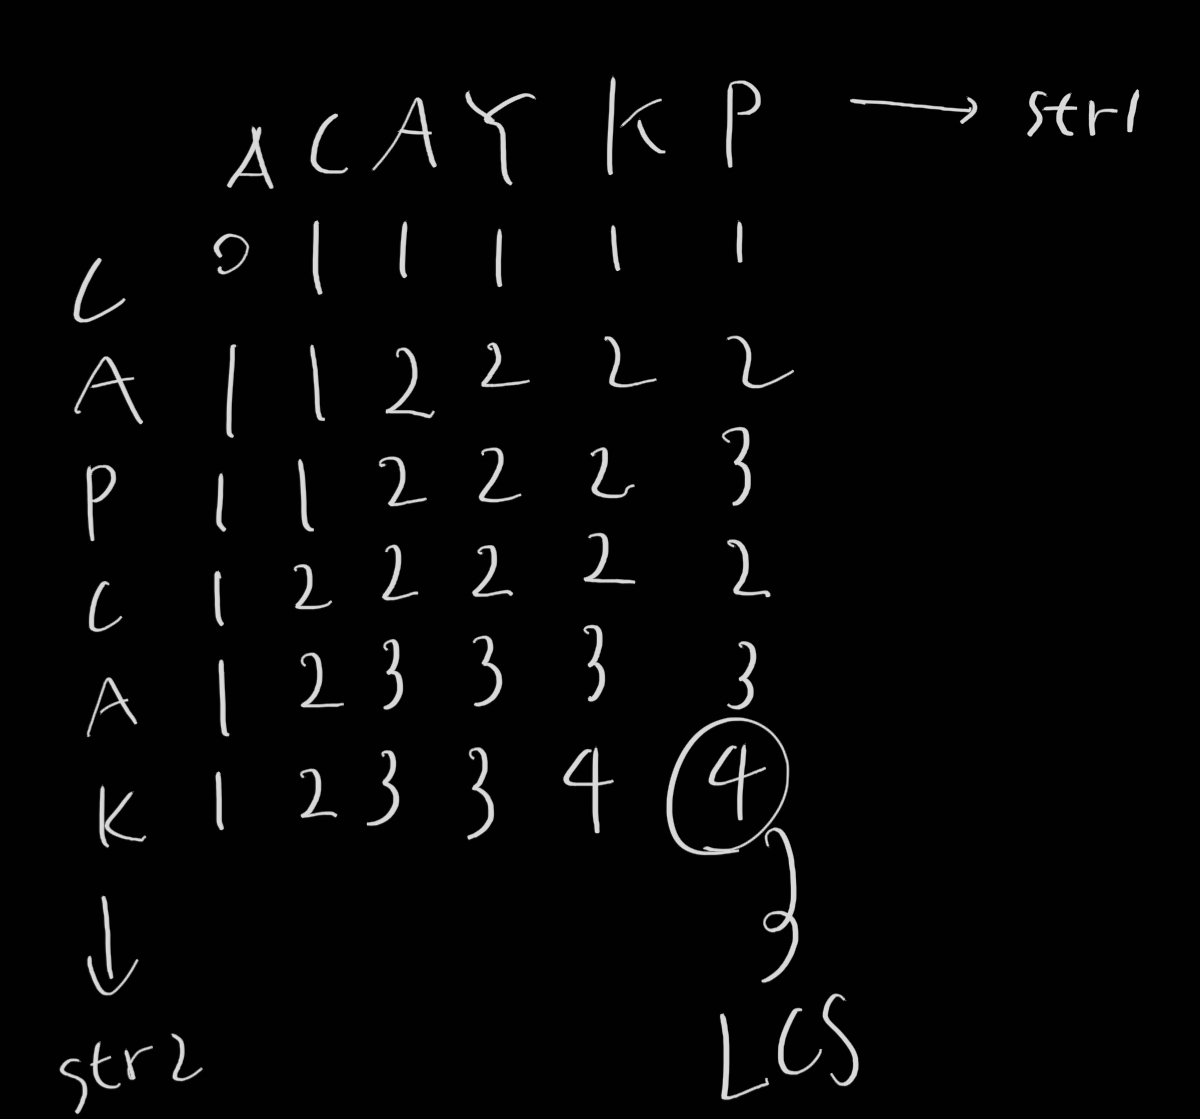 A C A Y K P → str1
C 0 1 1 1 1 1
A 1 1 2 2 2 2
P 1 1 2 2 2 3
C 1 2 2 2 2 2
A 1 2 3 3 3 3
K 1 2 3 3 4 4
↓
str2
LCS